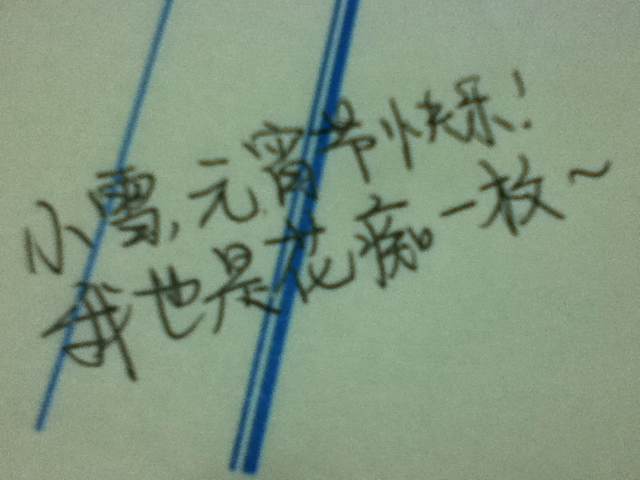 小雪,元宵节快乐!
我也是花痴一枚~